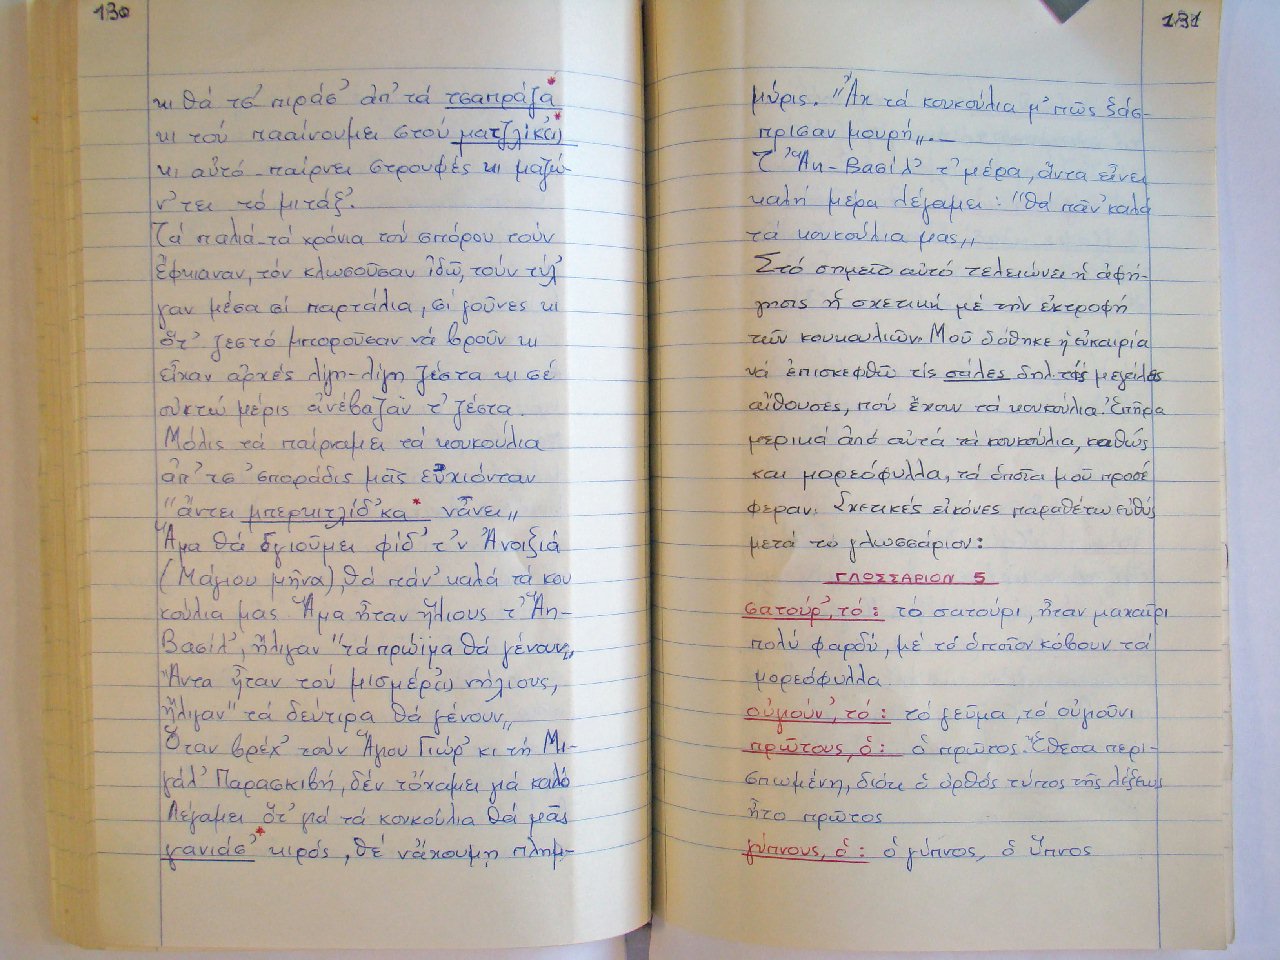 130
κι θά τσ' πιράσ' ἀπ' τά τσαπράζα*
κι τού πααίνουμει στού ματζλίκ'*
κι αὐτό παίρνει στρουφές κι μαζών-
ν'τει τό μιτάξ'.
Τά παλιά τά χρόνια τού σπόρου τούν
ἔφκιαναν, τόν κλωσοῦσαν ἰδῶ, τούν τύλ'
γαν μέσα σί παρτάλια, σί γοῦνες κι
ὅτ' ζεστό μποροῦσαν νά βροῦν κι
εἶχαν ἀρχές λίγη-λίγη ζέστα κι σέ
ουκτώ μέρις ἀνέβαζαν τ' ζέστα.
Μόλις τά παίρναμει τά κουκούλια
ἀπ' τσ' σποράδις μᾶς εὐχιόνταν
"ἄντει μπερκιτλίδ'κα* νἆνει"
Ἅμα θά δγιοῦμει φίδ' τ'ν Ἄνοιξιά
(Μάγιου μῆνα), θά πάν' καλά τά κου
κούλια μας. Ἅμα ἦταν ἥλιους τ' Ἅη-
Βασίλ', ἤλιγαν "τά πρώϊμα θά γένουν"
Ἄντα ἦταν τού μισμέρ' ἥλιους,
ἤλιγαν "τά δεύτιρα θά γένουν"
Ὅταν βρέχ' τούν Ἅγιου Γιώρ' κι τή Μι-
γάλ' Παρασκιβή, δέν τὄχαμει γιά καλό
Λέγαμει ὅτ' γιά τά κουκούλια θά μᾶς
γανιάσ'* κιρός, θέ νἄχουμη πλημ-
131
μύρις. "Ἄχ τά κουκούλια μ' πῶς ξάσ-
πρισαν μουρή".
Τ' Ἅη-Βασίλ' τ' μέρα, ἄντα εἶνει
καλή μέρα λέγαμει: "θά πᾶν' καλά
τά κουκούλια μας"
Στό σημεῖο αὐτό τελειώνει ἡ ἀφή-
γησις ἡ σχετική μέ τήν ἐκτροφή
τῶν κουκουλιῶν. Μοῦ δόθηκε ἡ εὐκαιρία
νά ἐπισκεφθῶ τίς σάλες δηλ. τές μεγάλες
αἴθουσες, πού ἔχουν τά κουκούλια. Ἐπῆρα
μερικά ἀπό αὐτά τά κουκούλια, καθώς
και μορεόφυλλα, τά ὁποῖα μοῦ προσέ
φεραν. Σχετικές εἰκόνες παραθέτω εὐθύς
μετά τό γλωσσάριον:
ΓΛΩΣΣΑΡΙΟΝ 5
σατούρ', τό: τό σατούρι, ἦταν μαχαῖρι
πολύ φαρδύ, μέ τό ὁποῖον κόβουν τά
μορεόφυλλα
οὐγιούν', τό: τό γεῦμα, τό οὐγιοῦνι
πρῶτους, ὁ: ὁ πρῶτος. Ἔθεσα περι-
σπωμένη, διότι ὁ ὀρθός τύπος τῆς λέξεως
ἦτο πρῶτος
γύπνους, ὁ: ὁ γύπνος, ὁ ὕπνος